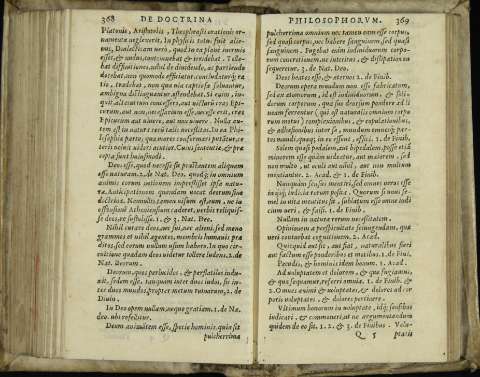 368 DE DOCTRINA
Platonis, Aristotelis, Theophrasti orationis or-
namenta neglexerit. In physicis totus fuit alie-
nus, Dialecticam vero, quod in ea plane inermis
esset, & nudus, contemnebat & irridebat. Tolle-
bat definitiones, nihil de dividendo, ac partiendo
docebat, non quomodo efficiatur, concludaturq; ra-
tio, tradebat, non qua via captiosa solvantur,
ambigua distinguantur, ostendebat. Si enim, in-
quit,
curum, aut non, necessarium esse, aut cras Epi-
curum aut vivere, aut non vivere. Nulla au-
tem est in natura rerum talis necessitas. In ea Phi-
losophiæ parte, qua mores conformari putātur, ce-
teros neminem videri acutius. Cuius sententiæ & præ
cepta sunt huiusmodi.
Deos esse, quod necesse sit præstantem aliquam
esse naturam. 2. de Nat. Deo. quodq; in omnium
animis eorum notionem impressisset ipsa natu-
ra. Anticipationem quandam vocat deorum sine
doctrina. Nonnullis tamen visum est eum, ne in
offensionem Atheniensium caderet, verbis reliquis-
se deos, re sustulisse. 1. & 3. Nat. Deo.
Nihil curare deos, nec sui, nec alieni, sed mono
grammos et nihil agentes, membris humanis præ
ditos, sed eorum nullum usum habere. In quo cir-
cuitione quadam deos videtur tollere Iudens. 2. de
Nat. Deorum.
Deorum, quos perlucidos, & perflabiles indu-
xit, sedem esse, tanquam inter duos lucos, sic in-
ter duos mundos, propter metum ruinarum. 2. de
Divin.
In Deo opem nullam, neque gratiam. 1. de Na.
deo. ubi refellitur.
Deum animantem esse, specie hominis, quæ sit
pulcherrima
PHILOSOPHORVM. 369
pulcherrima omnium nec tamen eam esse corpus,
sed quasi corpus, nec habere sanguinem, sed quasi
sanguinem. Fugebat enim individuorum corpo-
rum concretionem, ne interitus, & dissipatio con
sequeretur. 3. de Nat. Deo.
Deos beatos esse, & eternos 2. de Finib.
Deorum opera mundum non esse fabricatum,
sed ex atomorum, id est individuorum, & soli-
dorum corporum, quæ suo deorsum pondere ad li
neam ferrentur (qui est naturalis omnium corpo
rum motus) complexionibus, & copulationibus,
& adhæsionibus inter se, mundum omnesq; par-
tes mundi, quæq; in eo essent, effici. 1. de Finib.
Solem quasi pedalem, aut bipedalem posse etiā
minorem esse quàm videatur, aut maiorem, sed
non multo, ut oculi aut nihil, aut non multum
mentiantur. 2. Acad. & 1. de Finib.
Nunquam sensus mentiri, sed omnes veros esse
ipsiq; iudicia rerum posita. Quorum si unus se-
mel in vita mentitus sit, sublatum esse omne iudi
cium veri, & falsi. 1. de Finib.
Nullam in natura rerum necessitatem.
Opinionem a perspicuitate seiungendam, quæ
veri conturbat cognitionem. 2. Acad.
Quicquid aut sit, aut fiat, naturalibus fieri
aut factum esse ponderibus et motibus. 1. de Fini.
Pecudis, & hominis idem bonum. 2. Acad.
Ad voluptatem et dolorem, & quæ fugiamus,
& quæ sequamur, referri omnia. 1. de Finib. &
2. Omnes animi & voluptates, & dolores ad cor
poris voluptates, & dolores pertinere.
Vltimum bonorum in voluptate, idq; sensibus
iudicari. & commoneri, ut ne argumentandum
quidem de eo sit. 1. 2. & 3. de Finibus. Volu-
Q 5 ptatis